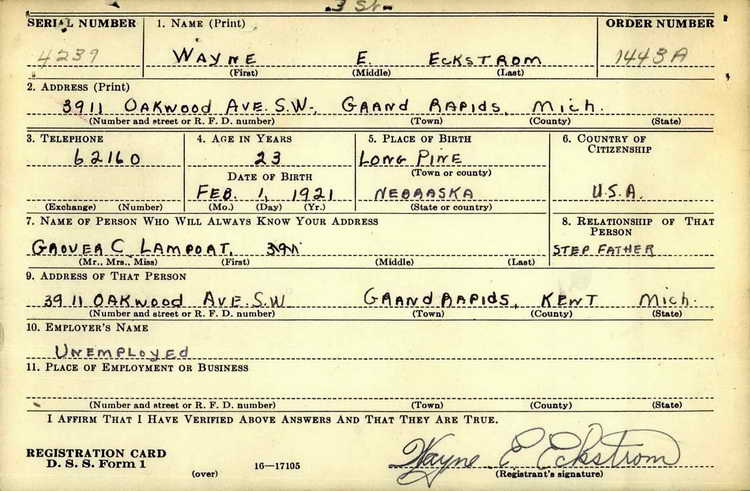 3 St.
SERIAL NUMBER 1. NAME (Print) ORDER NUMBER
4239 WAYNE E. ECKSTROM 1443A
(First) (Middle) (Last)
2. ADDRESS (Print)
3911 OAKWOOD AVE. S.W., GRAND RAPIDS, MICH.
(Number and street or R. F. D. number) (Town) (County) (State)
3. TELEPHONE 4. AGE IN YEARS 5. PLACE OF BIRTH 6. COUNTRY OF CITIZENSHIP
62160 23 LONG PINE
DATE OF BIRTH (Town or county)
FEB. 1, 1921 NEBRASKA U.S.A.
(Exchange) (Number) (Mo.) (Day) (Yr.) (State or country)
7. NAME OF PERSON WHO WILL ALWAYS KNOW YOUR ADDRESS 8. RELATIONSHIP OF THAT PERSON
GROVER C. LAMPORT, STEP FATHER
(Mr., Mrs., Miss) (First) (Middle) (Last)
9. ADDRESS OF THAT PERSON
3911 OAKWOOD AVE. S.W GRAND RAPIDS, KENT MICH.
(Number and street or R. F. D. number) (Town) (County) (State)
10. EMPLOYER'S NAME
UNEMPLOYED
11. PLACE OF EMPLOYMENT OR BUSINESS
(Number and street or R. F. D. number) (Town) (County) (State)
I AFFIRM THAT I HAVE VERIFIED ABOVE ANSWERS AND THAT THEY ARE TRUE.
REGISTRATION CARD Wayne E Eckstrom
D. S. S. Form 1 (over) 16—17105 (Registrant's signature)